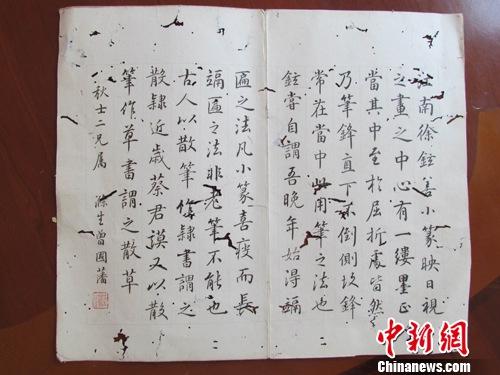 江南徐鉉善小篆映日視
之畫之中心有一縷墨正
當其中至於屈折處皆然
乃筆鋒直下不倒側故鋒
常在當中此用筆之法也
鉉嘗自謂吾晚年始得竵
匾之法凡小篆喜瘦而長
竵匾之法非老筆不能也
古人以散筆作隸書謂之
散隸近歲蔡君謨又以散
筆作草書謂之散草
秋士二兄属 滌生曾國藩
中新網
WWW.CHINANEWS.COM